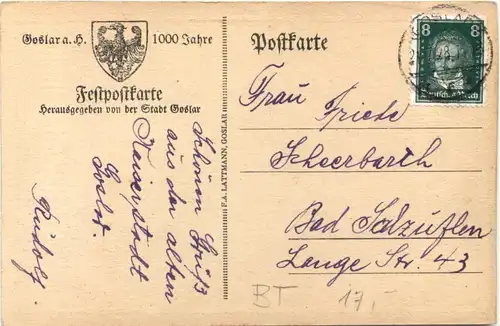 Goslar a. H. 1000 Jahre
Festpostkarte
Herausgegeben von der Stadt Goslar
Schönen Gruß
aus der alten
Kaiserstadt
Goslar.
Rudolf.
F. A. LATTMANN, GOSLAR
Postkarte
8 8
Deutsches Reich
Frau Friede
Scheerbarth
Bad Salzuflen
Lange Str. 43
BT 17,-